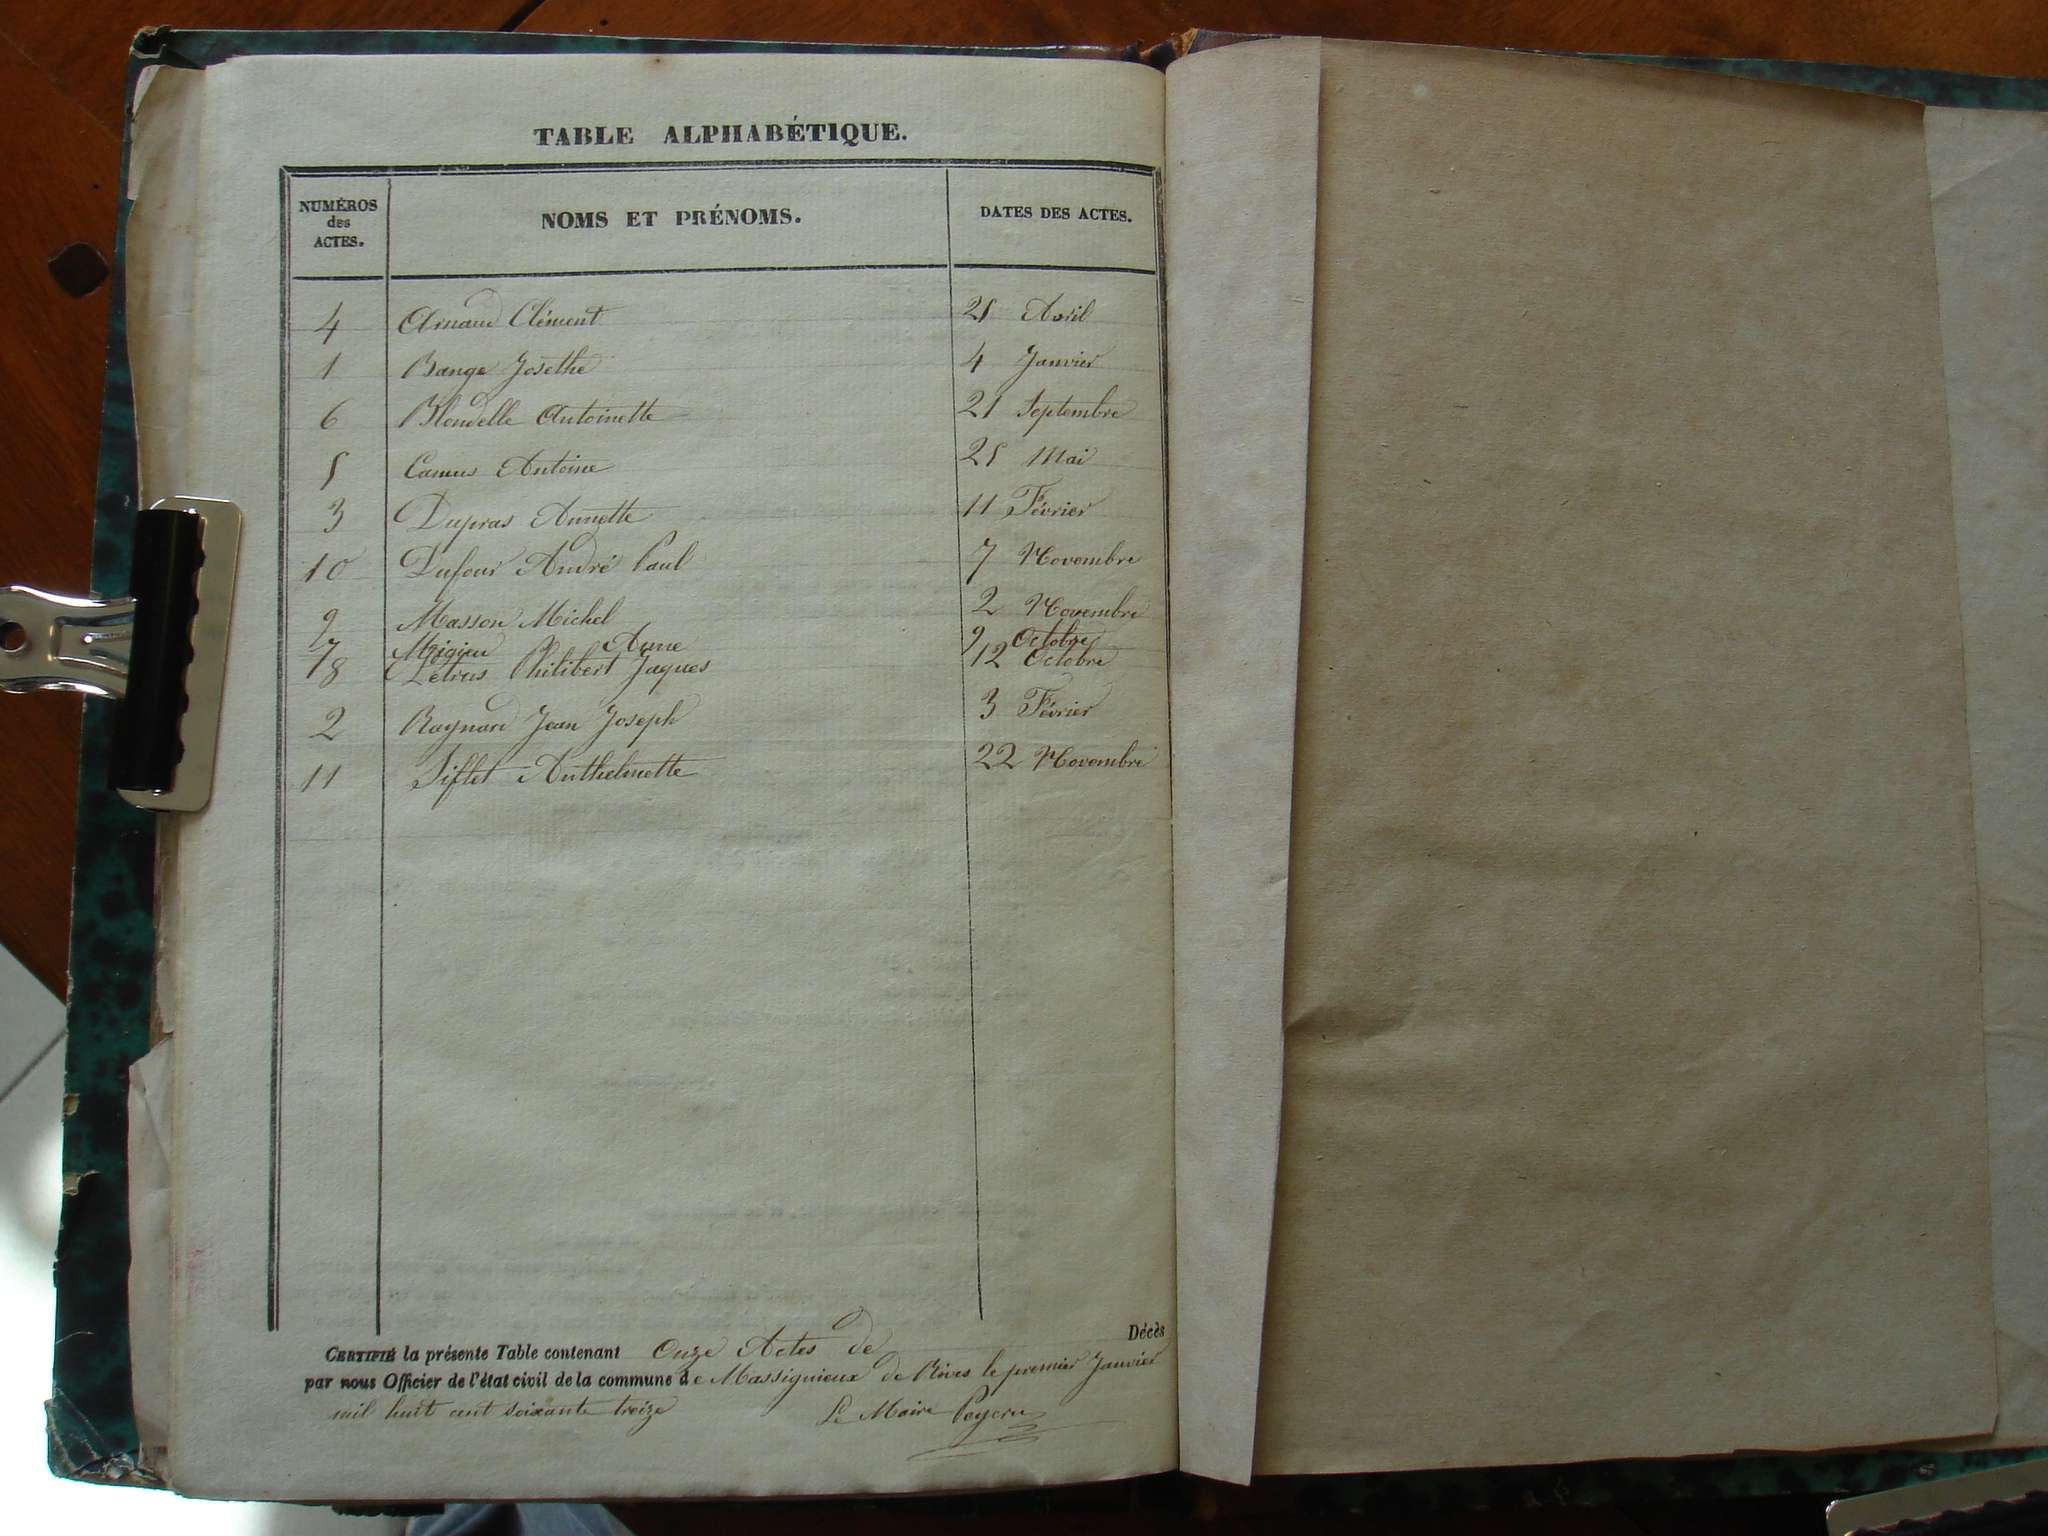 TABLE ALPHABÉTIQUE.
NUMÉROS des ACTES. NOMS ET PRÉNOMS. DATES DES ACTES.
4 Arnaud Clément 25 Avril
1 Bange Josethe 4 Janvier
6 Blondelle Antoinette 21 Septembre
5 Camus Antoine 25 Mai
3 Dupras Annette 11 Février
10 Dufour André Paul 7 Novembre
9 Masson Michel 2 Novembre
7 Anne 9 Octobre
8 Philibert Jaques 12 Octobre
2 Raynard Jean Joseph 3 Février
11 Siflet Anthelmette 22 Novembre
CERTIFIÉ la présente Table contenant Onze Actes de Décès
par nous Officier de l'état civil de la commune de Massignieux de Rives le premier Janvier
mil huit cent soixante treize Le Maire